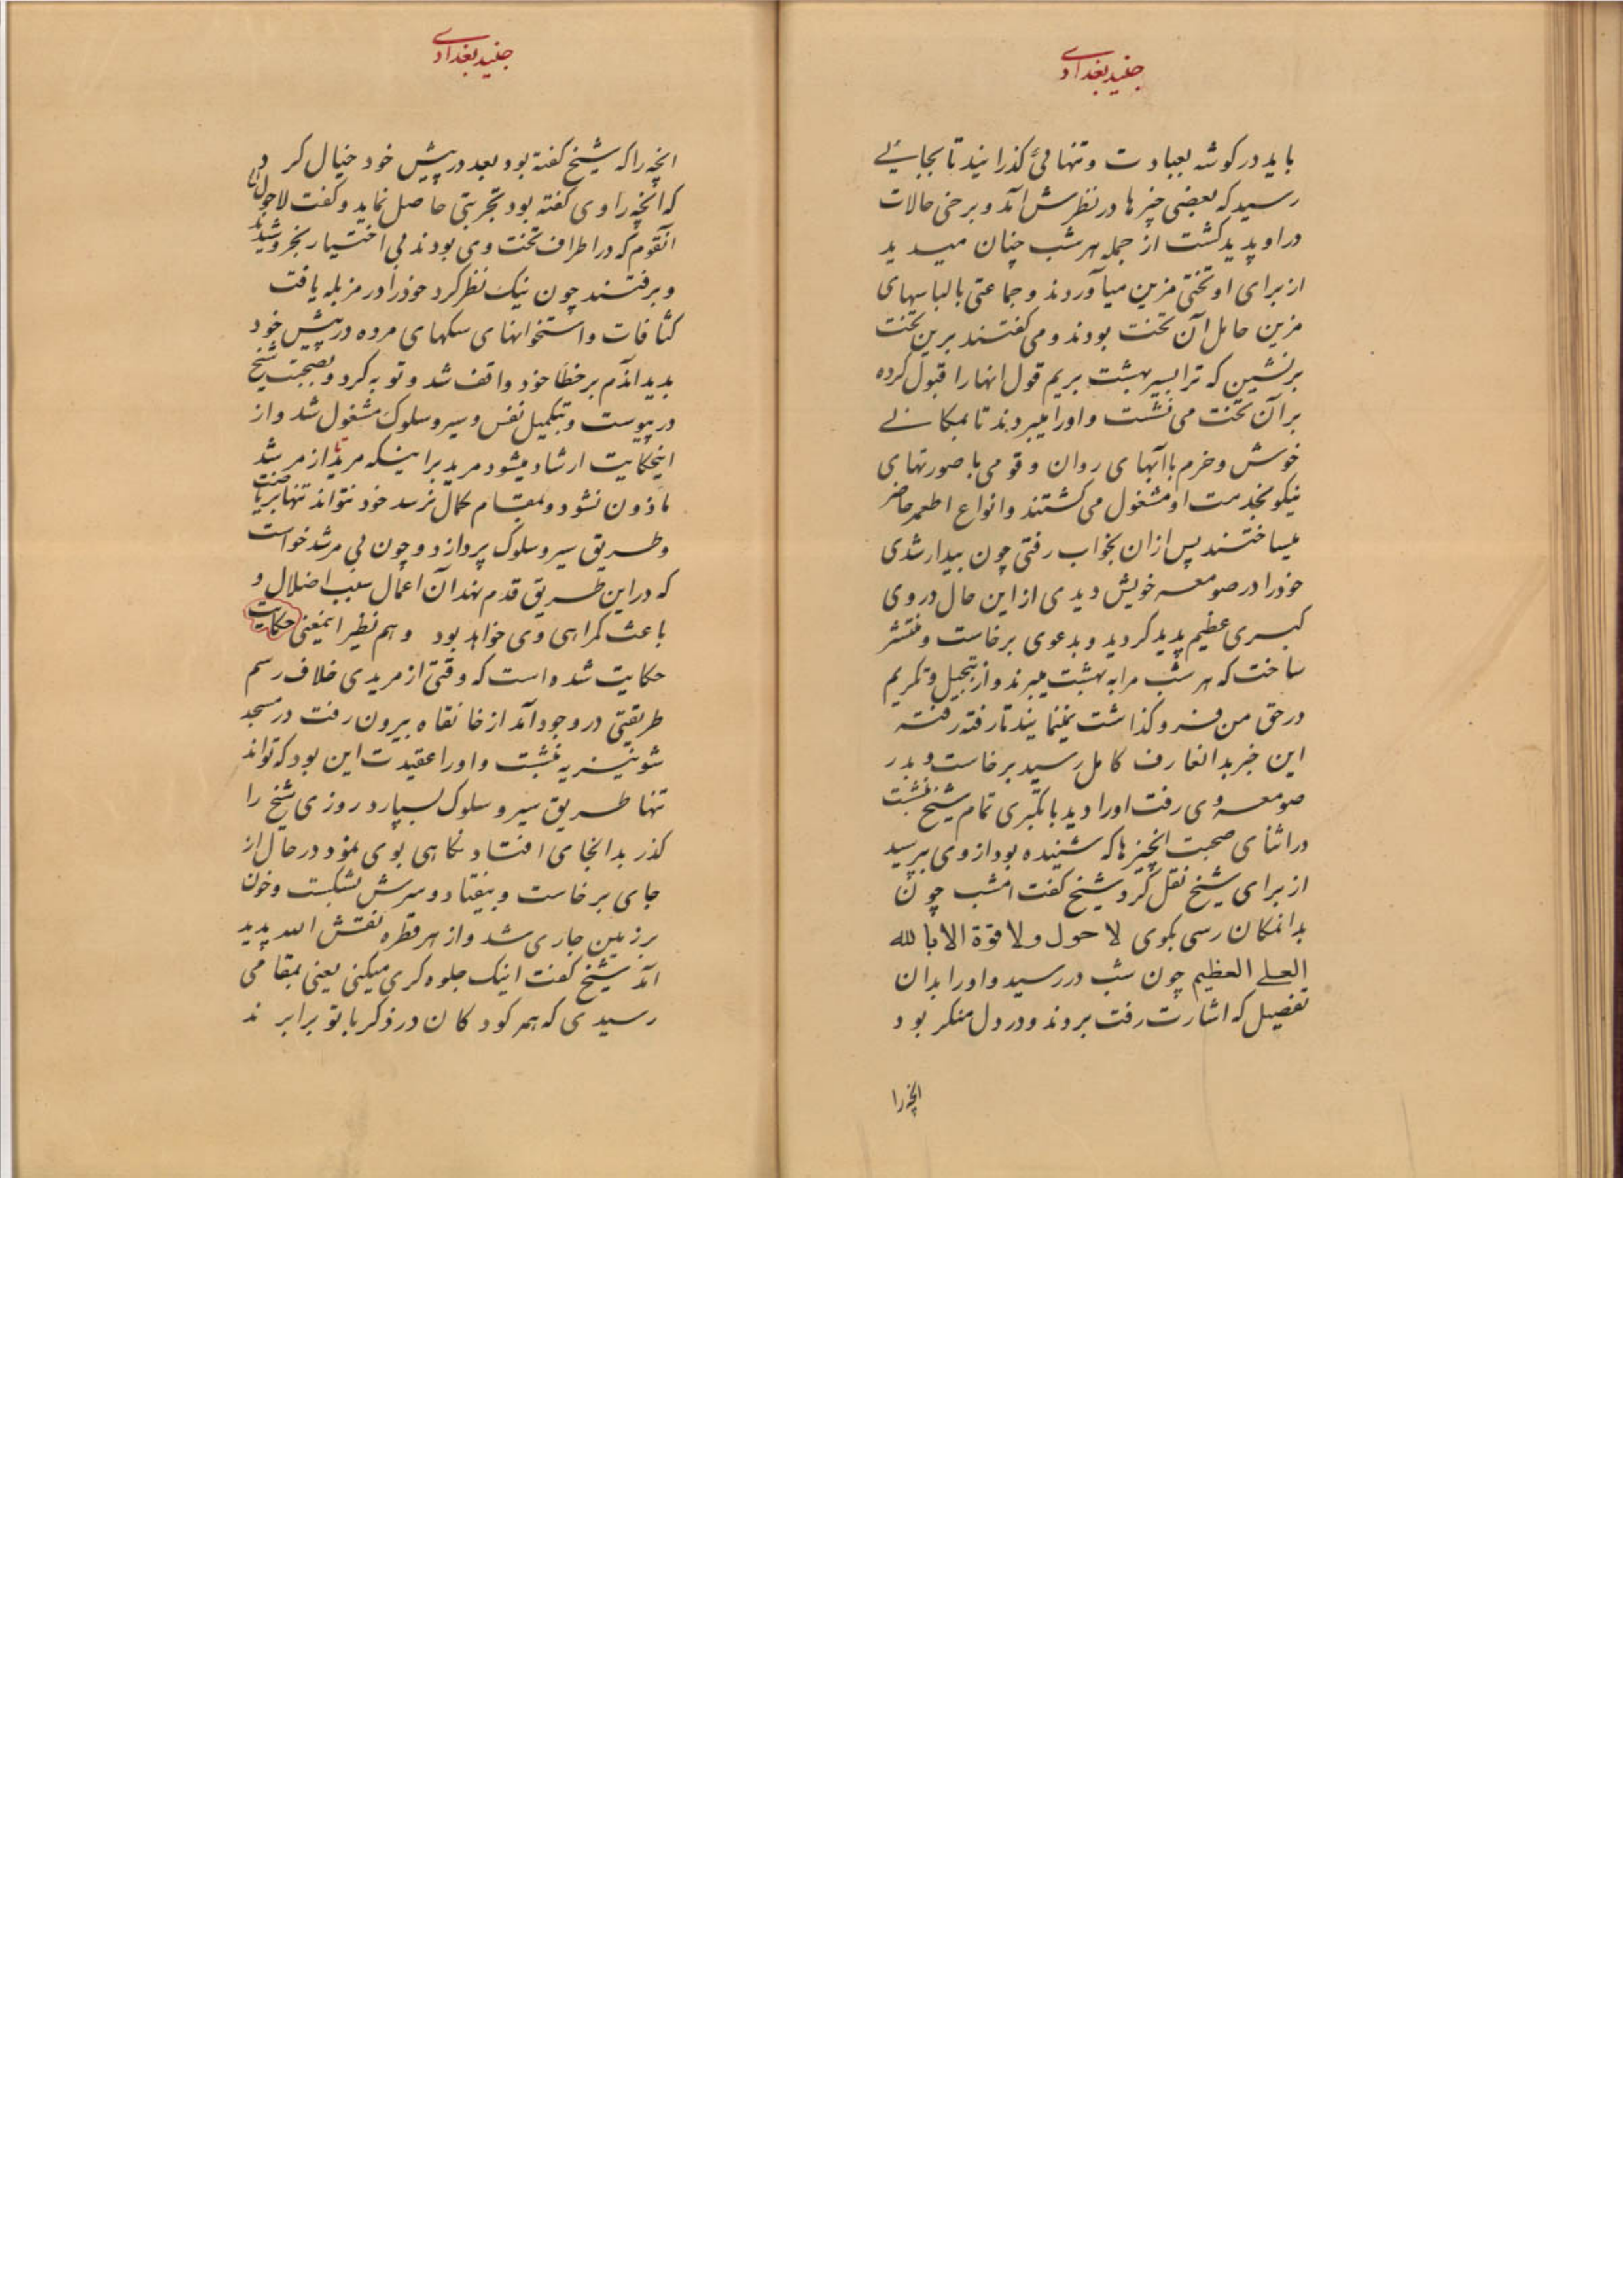 جنید بغدادی
باید در کوشه بعبادت و تنهائی کذرانید تا بجایی
رسید که بعضی چیزها در نظرش آمد و برخی حالات
در او پدید کشت از جمله هر شب چنان میدید
از برای او تختی مزین میآوردند و جماعتی بالباسهای
مزین حامل آن تخت بودند و می کفتند برین تخت
برنشین که ترا بسیر بهشت بریم قول انها را قبول کرده
بر آن تخت می نشست و اورا میبردند تا بمکانی
خوش و خرم با آبهای روان و قومی با صورتهای
نیکو بخدمت او مشغول می کشتند و انواع اطعمه حاضر
میساختند پس ازان بخواب رفتی چون بیدار شدی
خودرا در صومعه خویش دیدی از این حال در وی
کبری عظیم پدید کردید و بدعوی برخاست و منتشر
ساخت که هر شب مرا به بهشت میبرند و از تبجیل و تکریم
در حق من فرو کذاشت نمینمایند تا رفته رفته
این خبر بدانعارف کامل رسید برخاست و بدر
صومعه وی رفت اورا دید با تکبری تمام شیخ نشست
در اثنای صحبت انچیزها که شنیده بود از وی بپرسید
از برای شیخ نقل کرد شیخ کفت امشب چون
بدانمکان رسی بکوی لا حول ولا قوة الا بالله
العلی العظیم چون شب در رسید و اورا بدان
تفصیل که اشارت رفت بردند و در دل منکر بود
انچه را
جنید بغدادی
انچه را که شیخ کفته بود بعد در پیش خود خیال کرد
که انچه را وی کفته بود تجربتی حاصل نماید و کفت لاحول
آنقوم که در اطراف تخت وی بودند بی اختیار بخروشیدند
و برفتند چون نیک نظر کرد خودرا در مزبله یافت
کثافات و استخوانهای سکهای مرده در پیش خود
بدید اندم بر خطا خود واقف شد و توبه کرد و بصحبت شیخ
در پیوست و بتکمیل نفس و سیر و سلوک مشغول شد و از
اینحکایت ارشاد میشود مرید بر اینکه مرید تا از مرشد
ماذون نشود و بمقام کمال نرسد خود نتواند تنها بریاضت
و طریق سیر و سلوک پردازد و چون بی مرشد خواست
که در این طریق قدم نهد آن اعمال سبب اضلال و
باعث کمراهی وی خواهد بود و هم نظیر اینمعنی حکایت
حکایت شده است که وقتی از مریدی خلاف رسم
طریقتی در وجود آمد از خانقاه بیرون رفت در مسجد
شونیزیه بنشست و اورا عقیدت این بود که تواند
تنها طریق سیر و سلوک بسپارد روزی شیخ را
کذر بدانجای افتاد نکاهی بوی نمود در حال از
جای برخاست و بیفتاد و سرش بشکست و خون
بر زمین جاری شد و از هر قطره نقش الله پدید
آمد شیخ کفت اینک جلوه کری میکنی یعنی بمقامی
رسیدی که همه کودکان در ذکر با تو برابرند